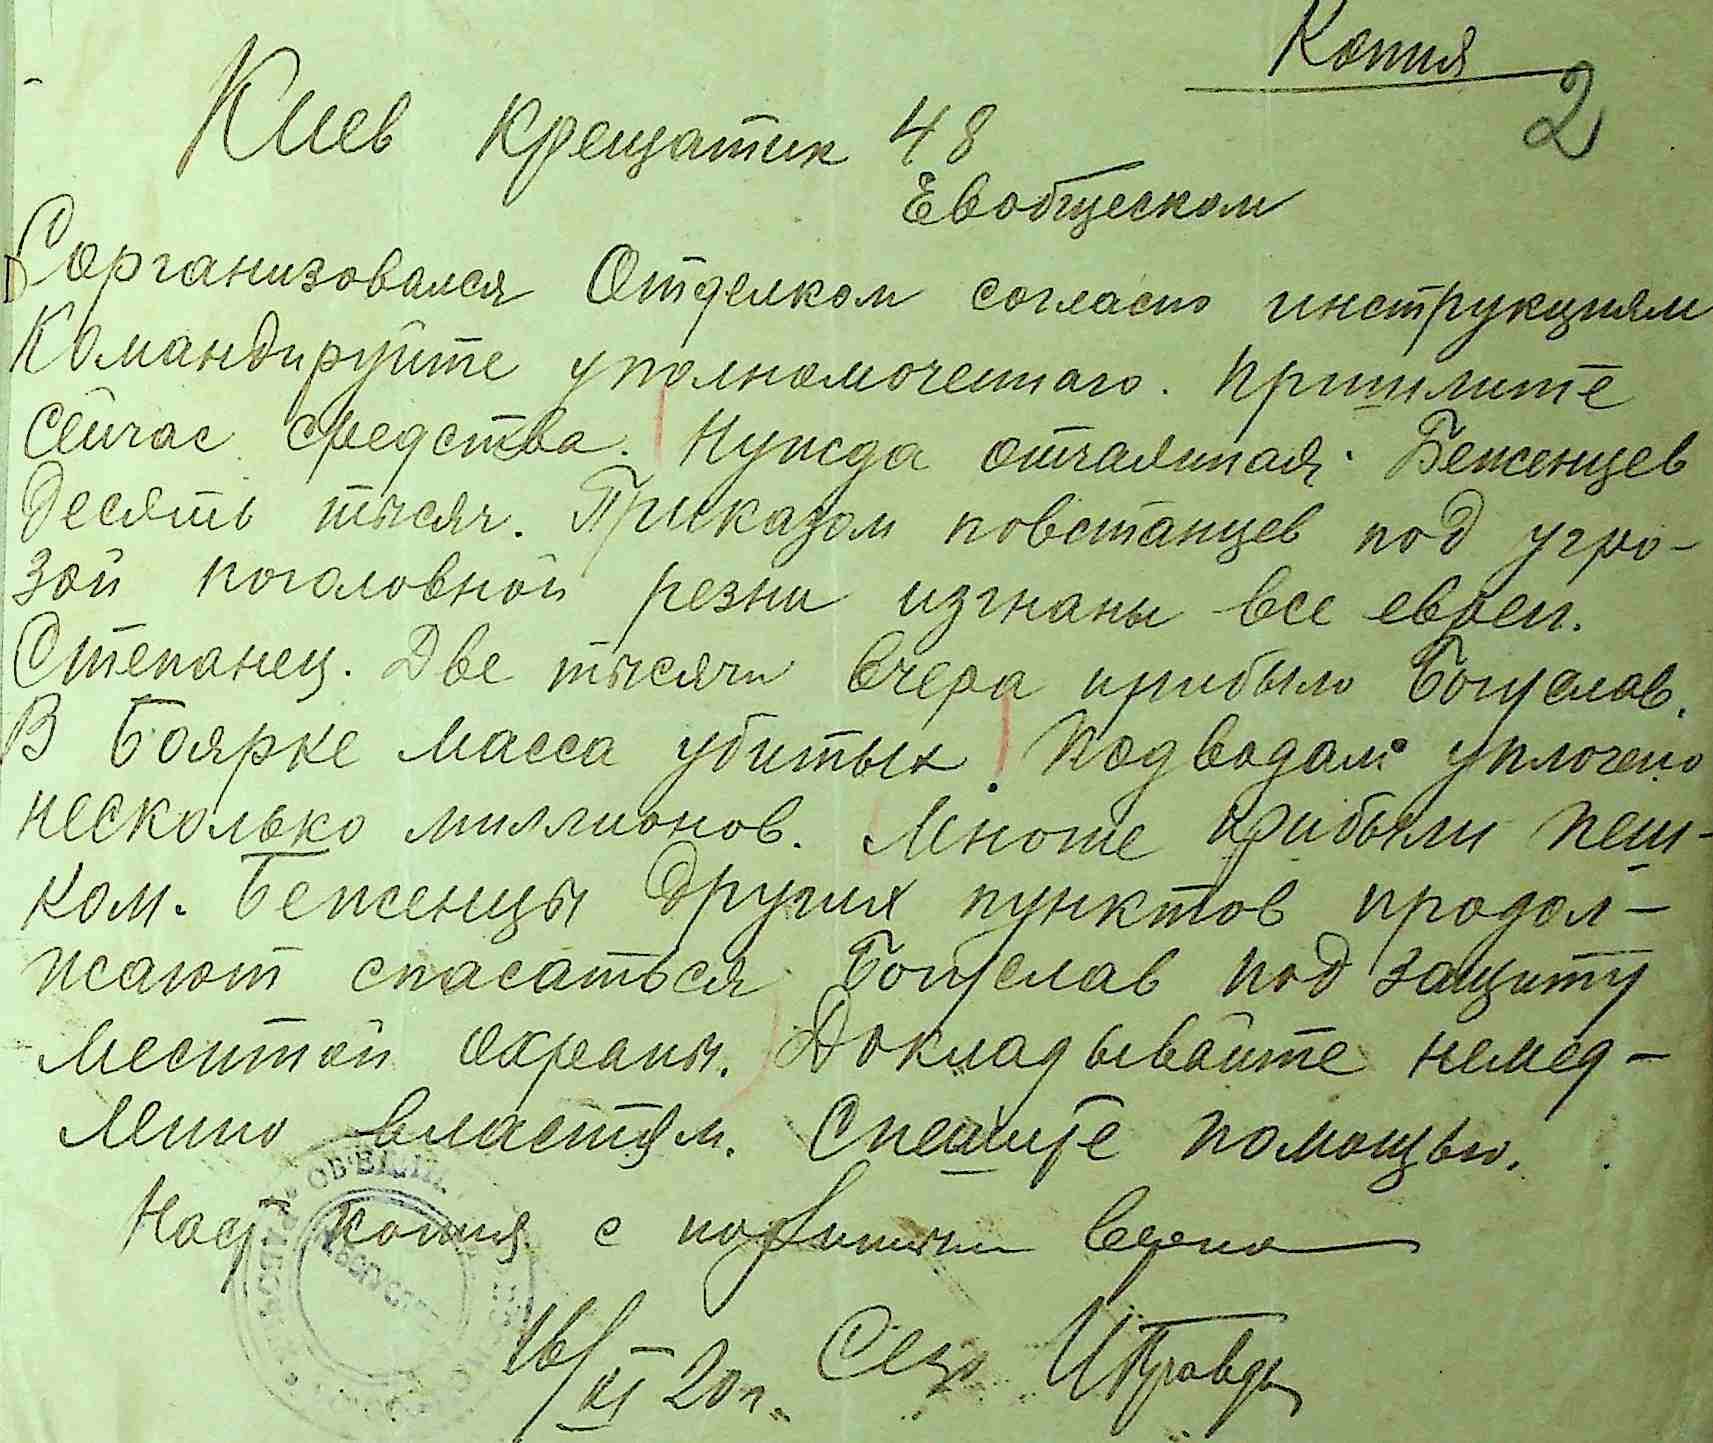 Копия
2
Киев Крещатик 48
Евобщеском
Сорганизовался Отделком согласно инструкциям
Командируйте уполномоченного. Пришлите
сейчас средства. Нужда отчаянная. Беженцев
десять тысяч. Приказом повстанцев под угро-
зой поголовной резни изгнаны все евреи.
Степанец. Две тысячи вчера прибыло Богуслав.
В Боярке масса убитых. Подводам уплочено
несколько миллионов. Многие прибыли пеш-
ком. Беженцы других пунктов продол-
жают спасаться Богуслав под защиту
местной охраны. Докладывайте немед-
ленно властям. Спешите помощью.
копия с подлинным верно
16/XI 20 г.